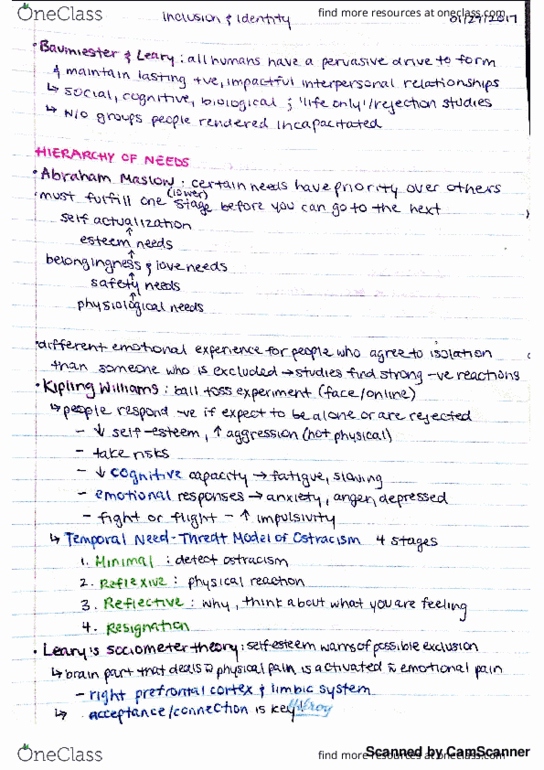 OneClass
find more resources at oneclass.com
Inclusion & Identity
01/27/2017
• Baumiester & Leary : all humans have a pervasive drive to form
& maintain lasting +ve, impactful interpersonal relationships
↳ social, cognitive, biological ; 'life only'/rejection studies
↳ N/O groups people rendered incapacitated
HIERARCHY OF NEEDS
• Abraham Maslow : certain needs have priority over others
• must fulfill one (lower) stage before you can go to the next
self actualization
↑
esteem needs
↑
belongingness & love needs
↑
safety needs
↑
physiological needs
• different emotional experience for people who agree to isolation
than someone who is excluded → studies find strong -ve reactions
• Kipling Williams : ball toss experiment (face/online)
↳ people respond -ve if expect to be alone or are rejected
- ↓ self-esteem, ↑ aggression (not physical)
- take risks
- ↓ cognitive capacity → fatigue, slowing
- emotional responses → anxiety, anger, depressed
- fight or flight - ↑ impulsivity
↳ Temporal Need-Threat Model of Ostracism 4 stages
1. Minimal : detect ostracism
2. Reflexive : physical reaction
3. Reflective : why, think about what you are feeling
4. Resignation
• Leary's sociometer theory : self-esteem warns of possible exclusion
↳ brain part that deals w physical pain is activated w emotional pain
- right prefrontal cortex & limbic system
↳ acceptance/connection is key
Hilroy
Scanned by CamScanner
OneClass
find more resources at oneclass.com